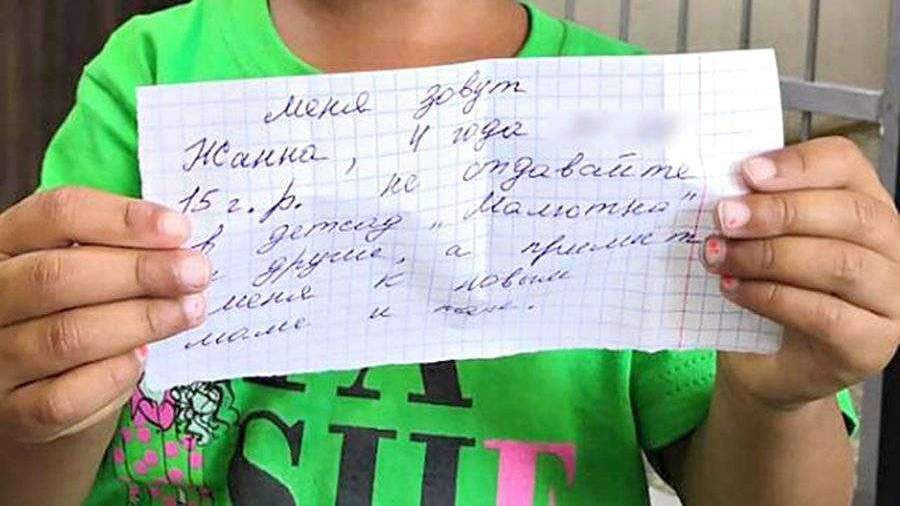 меня зовут
Жанна, 4 года
15 г. р. не отдавайте
в детсад „Малютка"
и другие, а примите
меня к новым
маме и папе.
SHE